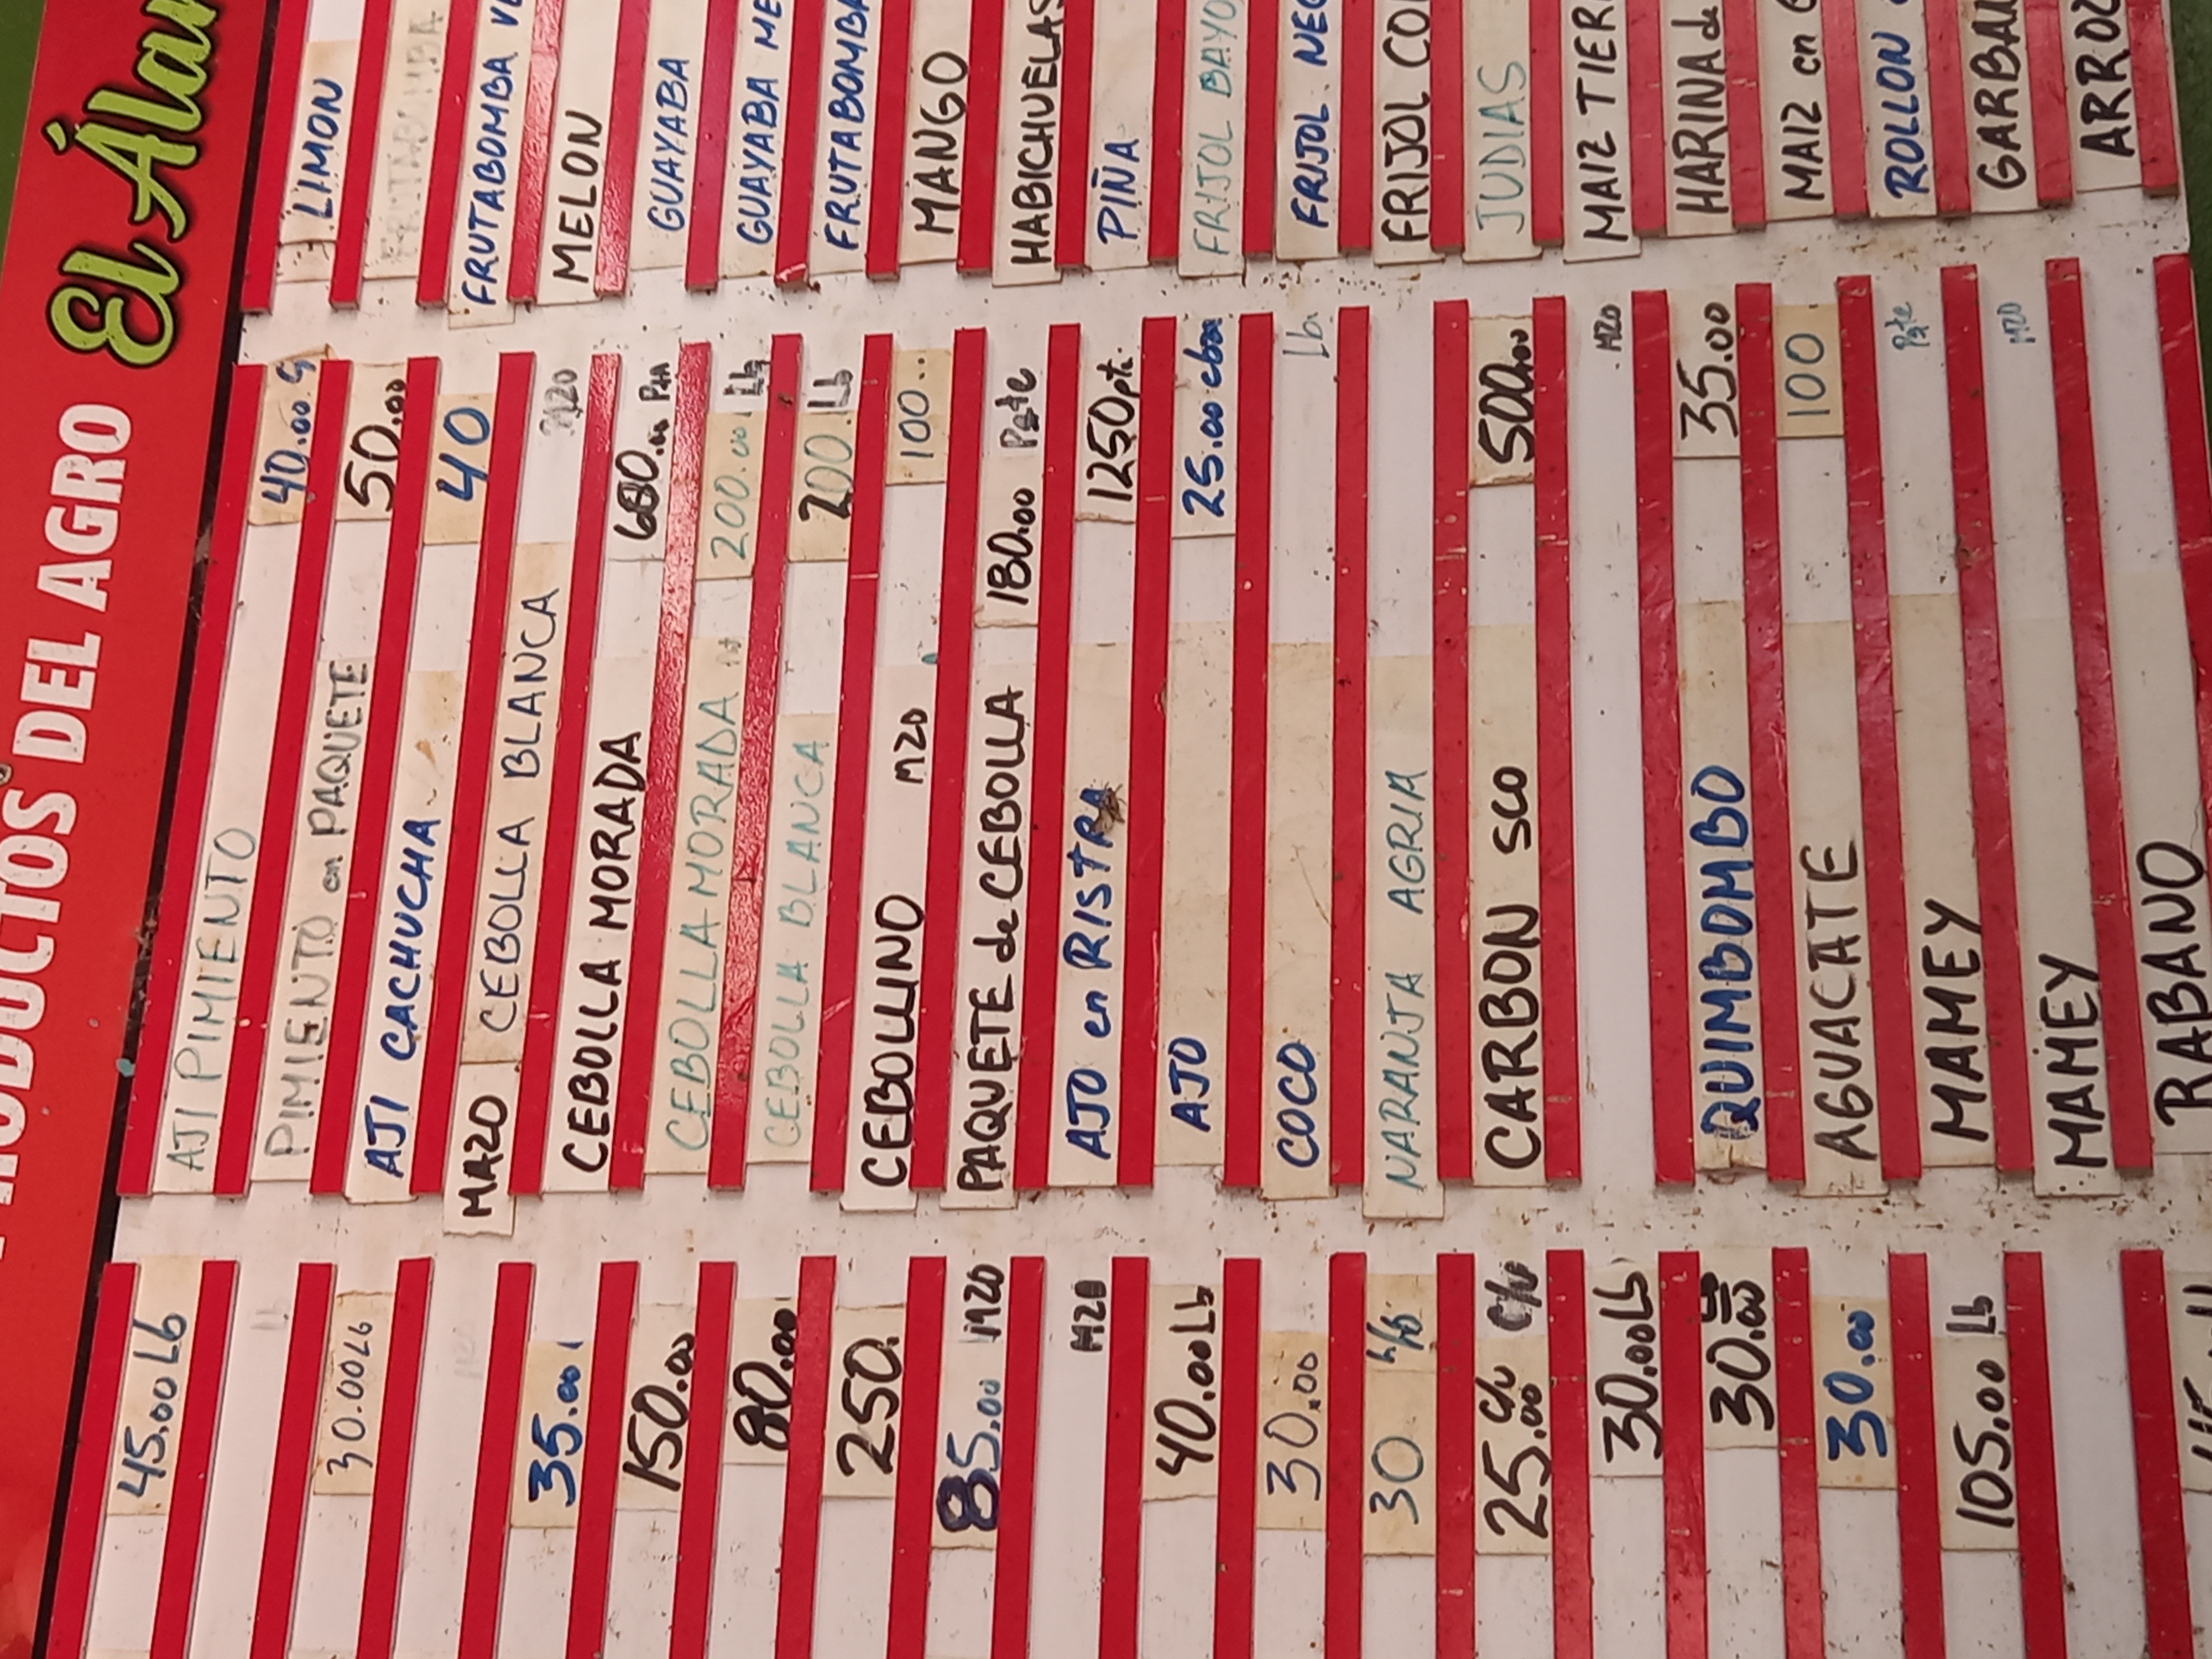 PRODUCTOS DEL AGRO El Álam
45.00 Lb
Lb
30.00 Lb
MZO
35.00
150.00
80.00
250.
85.00 MZO
MZO
40.00 Lb
30.00
30
25.00 c/u c/u
30.00 Lb
30.00
30.00
105.00 Lb
AJI PIMIENTO 40.00
PIMIENTO en PAQUETE 50.00
AJI CACHUCHA 40
MAZO CEBOLLA BLANCA MZO
CEBOLLA MORADA
CEBOLLA MORADA 200.00 Lb
CEBOLLA BLANCA 200. Lb
CEBOLLINO MZO 100..
PAQUETE de CEBOLLA 180.00 Pqte
AJO en RISTRA 1250
AJO 25.00 cbza
COCO Lb
NARANJA AGRIA
CARBON SCO 500.00
MZO
QUIMBOMBO 35.00
AGUACATE 100
MAMEY Pqte
MAMEY MZO
RABANO
LIMON
FRUTABOMBA
FRUTABOMBA VE
MELON
GUAYABA
GUAYABA ME
FRUTABOMBA
MANGO
HABICHUELAS
PIÑA
FRIJOL BAYO
FRIJOL NEG
FRIJOL COL
JUDIAS
MAIZ TIER
HARINA de
MAIZ en
ROLLON
GARBAN
ARROZ